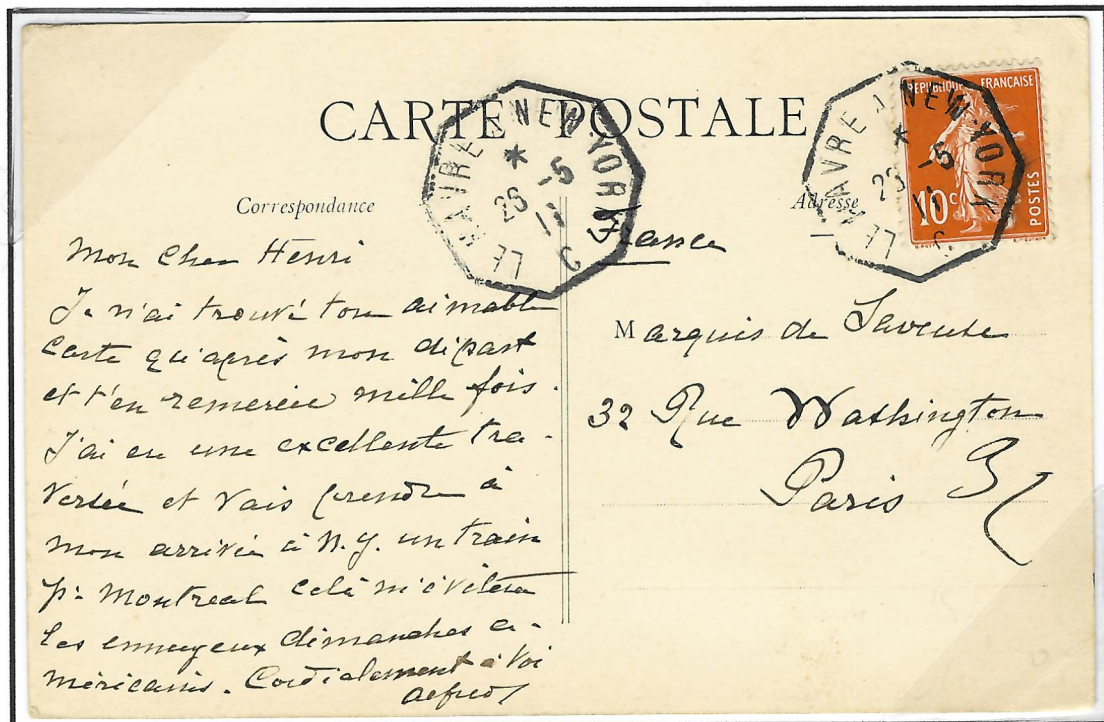 CARTE POSTALE
LE HAVRE A NEW-YORK
*
26 -5
11
LE HAVRE A NEW-YORK
*
26 -5
11
REPUBLIQUE FRANÇAISE
10c
POSTES
Correspondance
Adresse
France
Mon Cher Henri
Je n'ai trouvé ton aimable
carte qu'après mon départ
et t'en remercie mille fois.
J'ai eu une excellente tra-
versée et vais prendre à
mon arrivée à N.Y. un train
pr Montreal celà m'évitera
les ennuyeux dimanches a-
méricains. Cordialement à toi
Alfred
Marquis de
32 Rue Washington
Paris